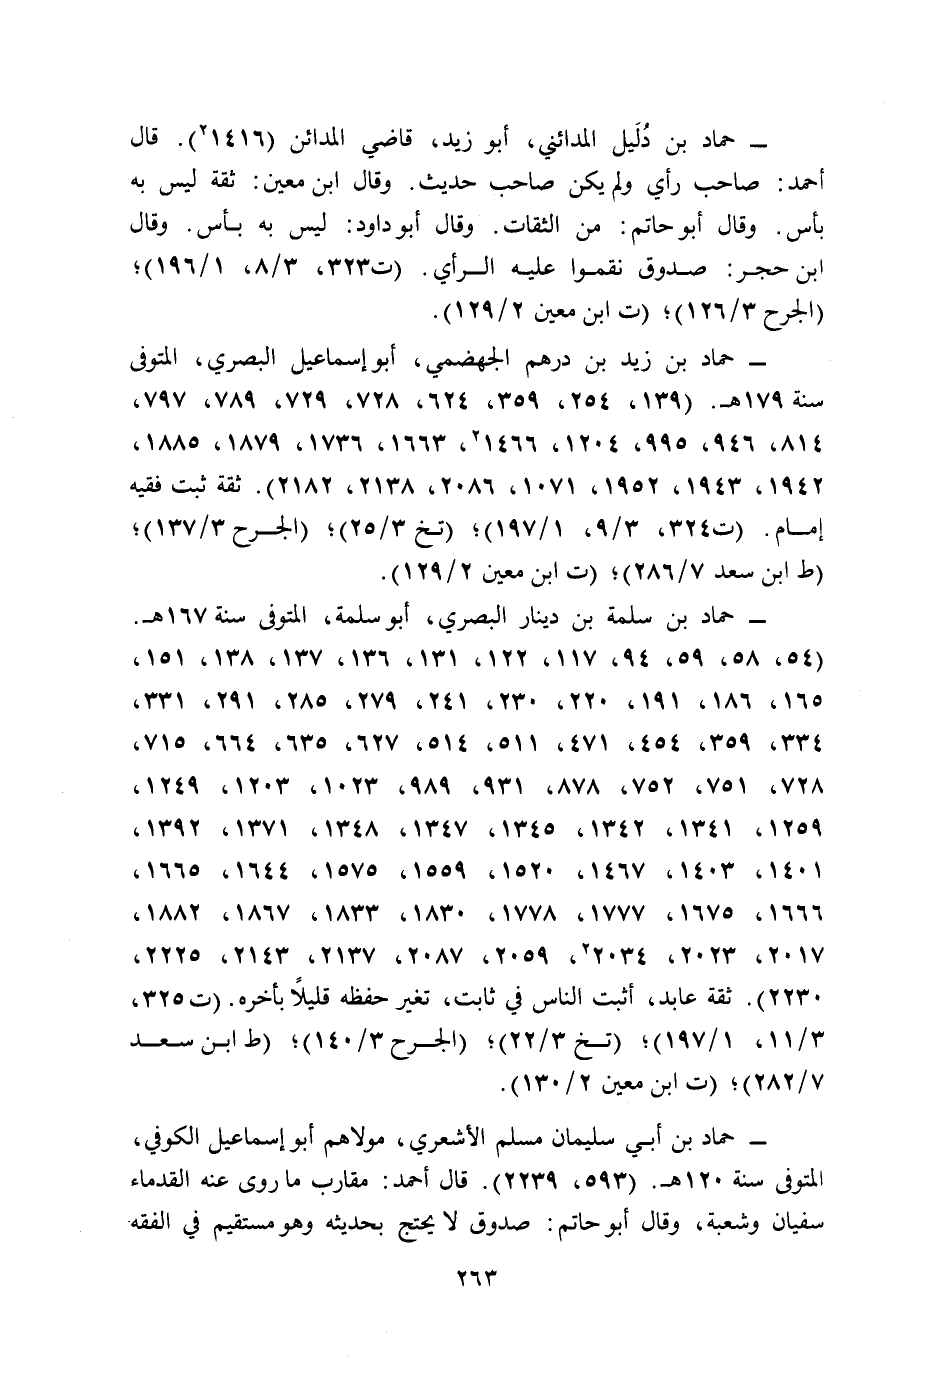 ــ حماد بن دُلَيل المدائني، أبو زيد، قاضي المدائن (١٤١٦٢). قال
أحمد: صاحب رأي ولم يكن صاحب حديث. وقال ابن معين: ثقة ليس به
بأس. وقال أبو حاتم: من الثقات. وقال أبو داود: ليس به بـأس. وقال
ابن حجـر: صـدوق نقمـوا عليـه الـرأي. (ت٣٢٣، ٨/٣، ١٩٦/١)؛
(الجرح ١٢٦/٣)؛ (ت ابن معين ١٢٩/٢).
ــ حماد بن زيد بن درهم الجهضمي، أبو إسماعيل البصري، المتوفى
سنة ١٧٩هـ. (١٣٩، ٢٥٤، ٣٥٩، ٦٢٤، ٧٢٨، ٧٢٩، ٧٨٩، ٧٩٧،
٨١٤، ٩٤٦، ٩٩٥، ١٢٠٤، ١٤٦٦٢، ١٦٦٣، ١٧٣٦، ١٨٧٩، ١٨٨٥،
١٩٤٢، ١٩٤٣، ١٩٥٢، ١٠٧١، ٢٠٨٦، ٢١٣٨، ٢١٨٢). ثقة ثبت فقيه
إمـام. (ت٣٢٤، ٩/٣، ١٩٧/١)؛ (تـخ ٢٥/٣)؛ (الجـرح ١٣٧/٣)؛
(ط ابن سعد ٢٨٦/٧)؛ (ت ابن معين ١٢٩/٢).
ــ حماد بن سلمة بن دينار البصري، أبو سلمة، المتوفى سنة ١٦٧هـ.
(٥٤، ٥٨، ٥٩، ٩٤، ١١٧، ١٢٢، ١٣١، ١٣٦، ١٣٧، ١٣٨، ١٥١،
١٦٥، ١٨٦، ١٩١، ٢٢٠، ٢٣٠، ٢٤١، ٢٧٩، ٢٨٥، ٢٩١، ٣٣١،
٣٣٤، ٣٥٩، ٤٥٤، ٤٧١، ٥١١، ٥١٤، ٦٢٧، ٦٣٥، ٦٦٤، ٧١٥،
٧٢٨، ٧٥١، ٧٥٢، ٨٧٨، ٩٣١، ٩٨٩، ١٠٢٣، ١٢٠٣، ١٢٤٩،
١٢٥٩، ١٣٤١، ١٣٤٢، ١٣٤٥، ١٣٤٧، ١٣٤٨، ١٣٧١، ١٣٩٢،
١٤٠١، ١٤٠٣، ١٤٦٧، ١٥٢٠، ١٥٥٩، ١٥٧٥، ١٦٤٤، ١٦٦٥،
١٦٦٦، ١٦٧٥، ١٧٧٧، ١٧٧٨، ١٨٣٠، ١٨٣٣، ١٨٦٧، ١٨٨٢،
٢٠١٧، ٢٠٢٣، ٢٠٣٤٢، ٢٠٥٩، ٢٠٨٧، ٢١٣٧، ٢١٤٣، ٢٢٢٥،
٢٢٣٠). ثقة عابد، أثبت الناس في ثابت، تغير حفظه قليلاً بأخره. (ت ٣٢٥،
١١/٣، ١٩٧/١)؛ (تـخ ٢٢/٣)؛ (الجـرح ١٤٠/٣)؛ (ط ابـن سـعـد
٢٨٢/٧)؛ (ت ابن معين ١٣٠/٢).
ــ حماد بن أبـي سليمان مسلم الأشعري، مولاهم أبو إسماعيل الكوفي،
المتوفى سنة ١٢٠هـ. (٥٩٣، ٢٢٣٩). قال أحمد: مقارب ما روى عنه القدماء
سفيان وشعبة، وقال أبو حاتم: صدوق لا يحتج بحديثه وهو مستقيم في الفقه
٢٦٣